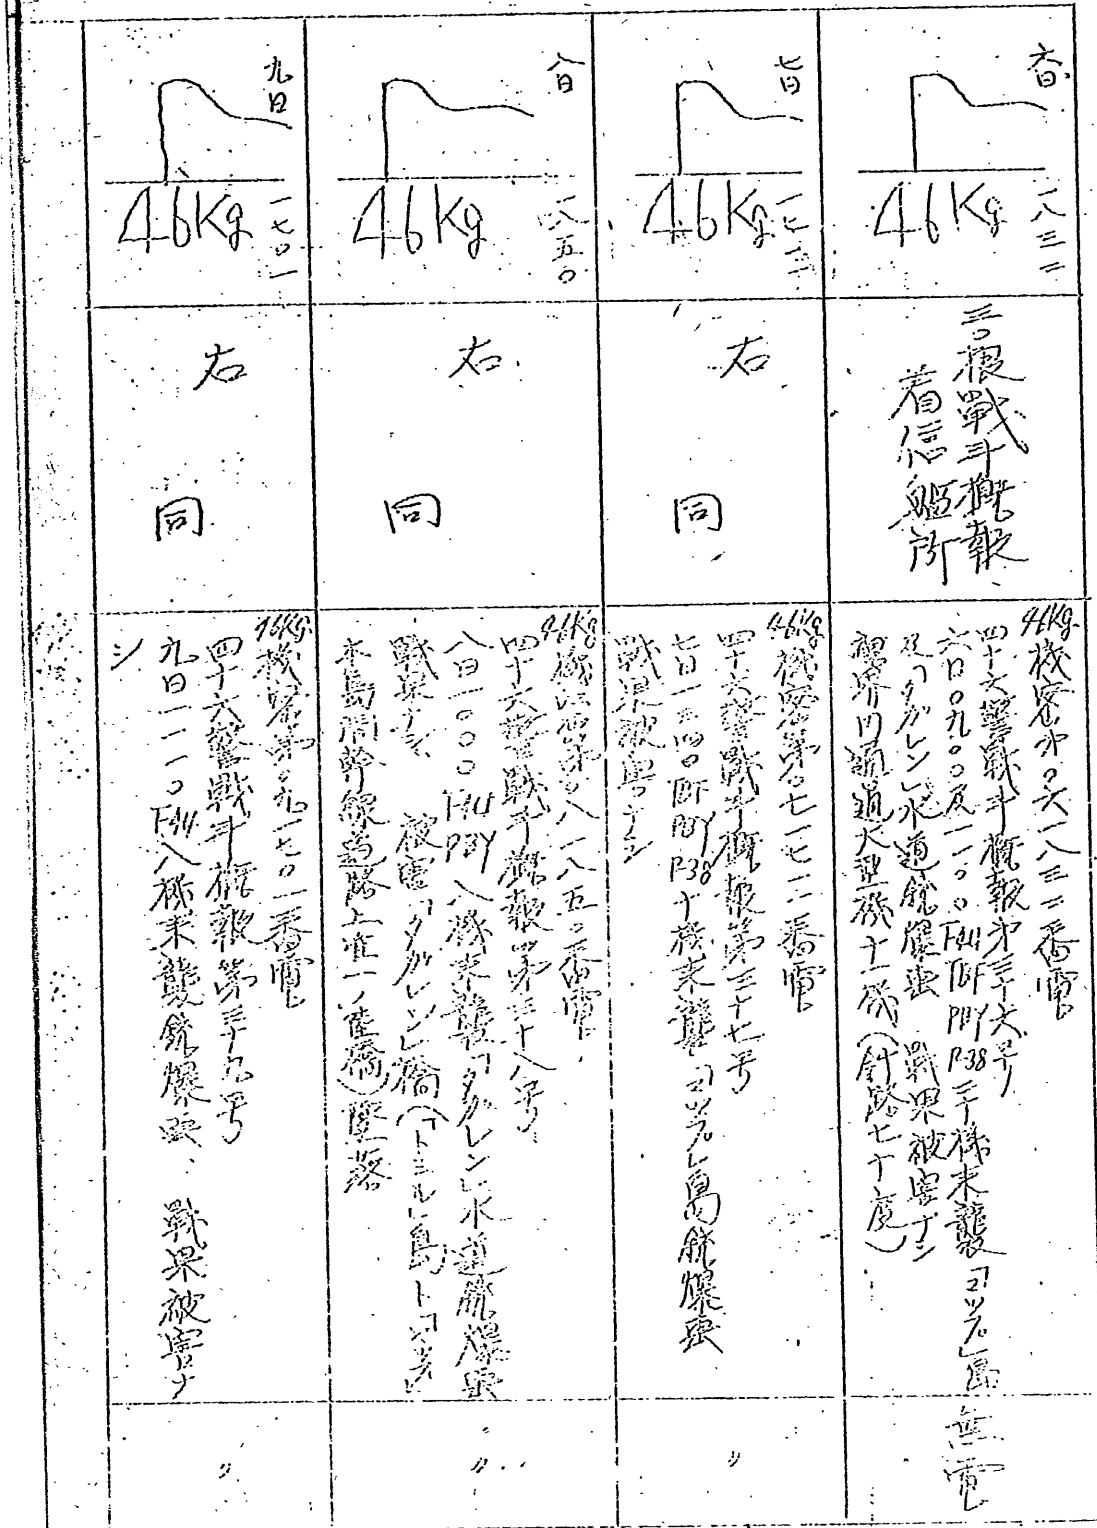 六日
一八三二
46Kg
三〇根戦斗概報
着信艦所
46Kg機密第〇六一八三二番電
四十六警戦斗概報第三十六号
六日〇九〇〇及一一〇〇F4U TBF PBY P-38三十機来襲「コッブ」島
及「タガレン」水道銃爆撃 戦果被害ナシ
視界内通過大型機十一機(針路七十度)
無電
七日
46Kg
右
同
46Kg機密第〇七一七一二番電
四十六警戦斗概報第三十七号
七日一一四〇TBF PBY P-38十機来襲「コッブ」島銃爆撃
戦果被害ナシ
〃
八日
一八五〇
46Kg
右
同
46Kg機密第〇八一八五〇番電
四十六警戦斗概報第三十八号
八日一〇〇〇F4U PBY八機来襲「タガレン」水道銃爆撃
戦果ナシ 被害「タガレン」橋(「トミル」島ト
本島間幹線道路上唯一ノ陸橋)墜落
〃
九日
一七〇一
46Kg
右
同
46Kg機密第〇九一七〇一番電
四十六警戦斗概報第三十九号
九日一一一〇F4U八機来襲銃爆撃 戦果被害ナ
シ
〃